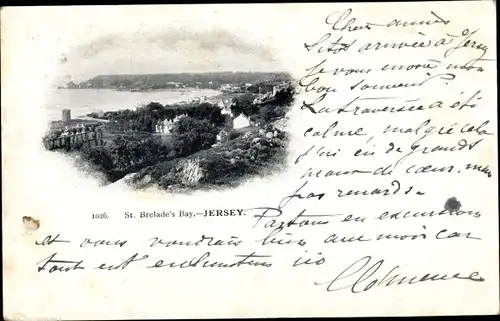 Chers amis
Sitôt arrivée à Jersey
je vous envoie mon
bon souvenir.
La traversée a été
calme, malgré cela
j'ai eu de grands
maux de cœur, mais
pas
1026. St. Brelade's Bay.—JERSEY.
Partons en excursion
et vous voudrais bien, avec moi car
tout est enchanteur ici